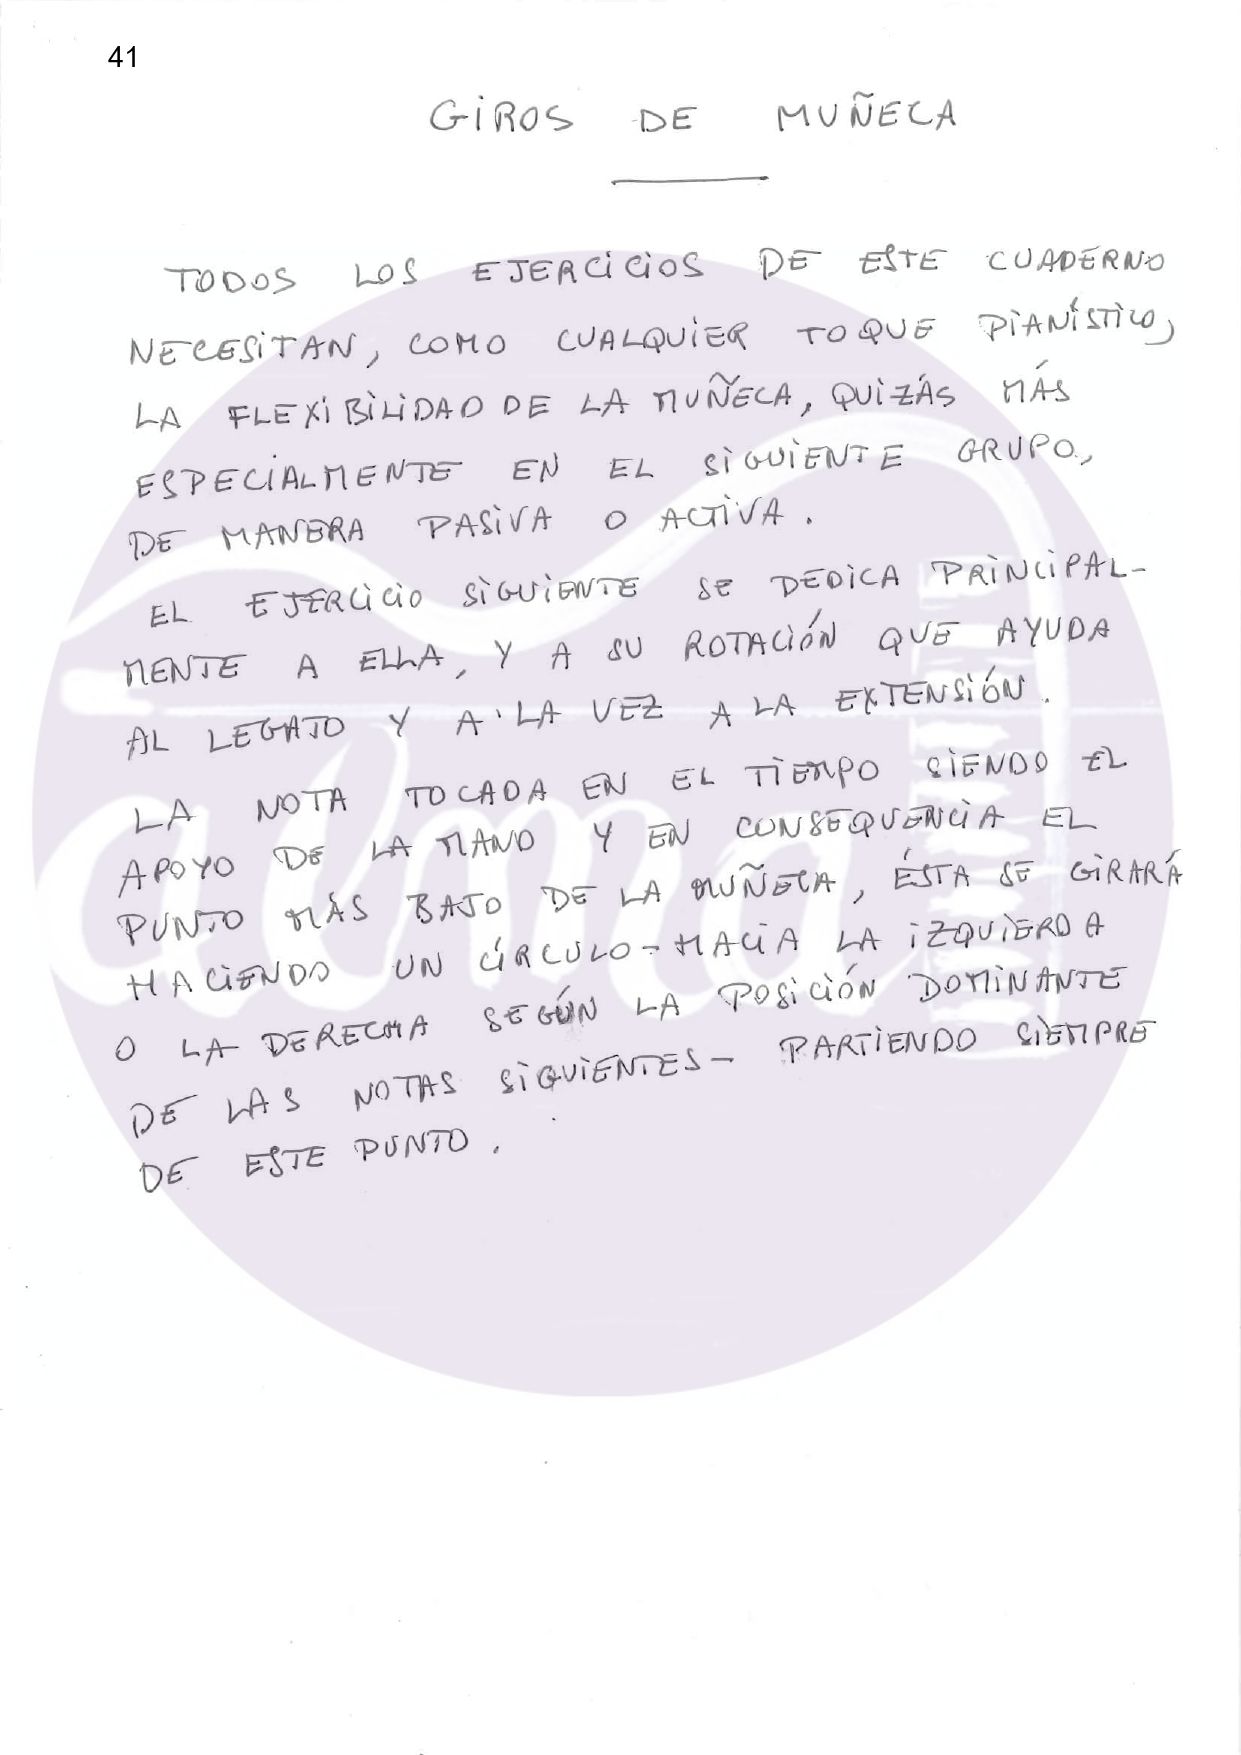 41
GIROS DE MUÑECA
TODOS LOS EJERCICIOS DE ESTE CUADERNO
NECESITAN, COMO CUALQUIER TOQUE PIANÍSTICO,
LA FLEXIBILIDAD DE LA MUÑECA, QUIZÁS MÁS
ESPECIALMENTE EN EL SIGUIENTE GRUPO,
DE MANERA PASIVA O ACTIVA.
EL EJERCICIO SIGUIENTE SE DEDICA PRINCIPAL-
MENTE A ELLA, Y A SU ROTACIÓN QUE AYUDA
AL LEGATO Y A LA VEZ A LA EXTENSIÓN.
LA NOTA TOCADA EN EL TIEMPO SIENDO EL
APOYO DE LA MANO Y EN CONSEQUENCIA EL
PUNTO MÁS BAJO DE LA MUÑECA, ÉSTA SE GIRARÁ
HACIENDO UN CÍRCULO - HACIA LA IZQUIERDA
O LA DERECHA SEGÚN LA POSICIÓN DOMINANTE
DE LAS NOTAS SIGUIENTES - PARTIENDO SIEMPRE
DE ESTE PUNTO.
alma